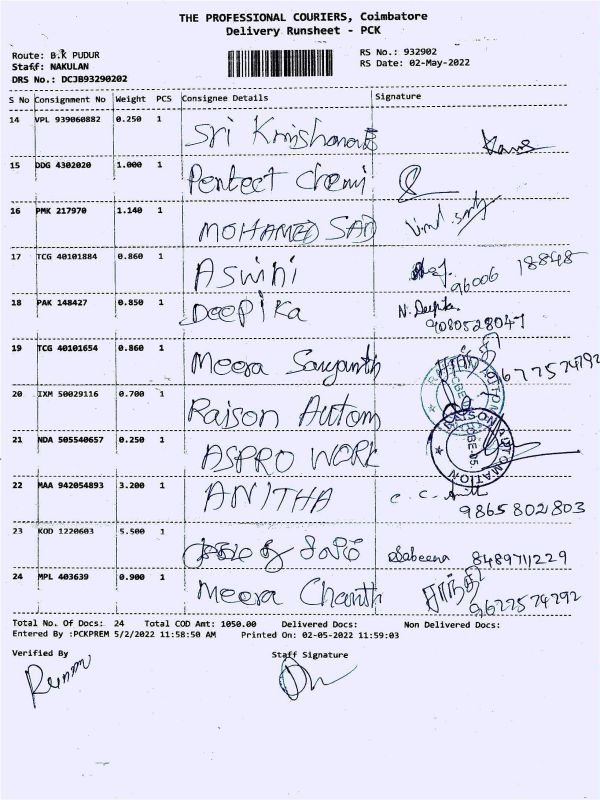 THE PROFESSIONAL COURIERS, Coimbatore
Delivery Runsheet - PCK
Route: B.K PUDUR
RS No.: 932902
Staff: NAKULAN
RS Date: 02-May-2022
DRS No.: DCJB93290202
S No Consignment No Weight PCS Consignee Details Signature
14 VPL 939060882 0.250 1 Sri
15 DDG 4302020 1.000 1 Pentect Chemi
16 PMK 217970 1.140 1 MOHAMED SAD
17 TCG 40101884 0.860 1 Aswini 96006 18848
18 PAK 148427 0.850 1 Deepika N. Deepta 9080528047
19 TCG 40101654 0.860 1 Meera
20 IXM 50029116 0.700 1 Raison Autom
21 NDA 505540657 0.250 1 ASPRO WORK
RAISON AUTOMATION
22 MAA 942054893 3.200 1 ANITHA 9865802803
23 KOD 1220603 5.500 1 Sabeena 8489711229
24 MPL 403639 0.900 1 Meera Chanth சாந்தி
Total No. Of Docs: 24 Total COD Amt: 1050.00 Delivered Docs: Non Delivered Docs:
Entered By :PCKPREM 5/2/2022 11:58:50 AM Printed On: 02-05-2022 11:59:03
Verified By Staff Signature